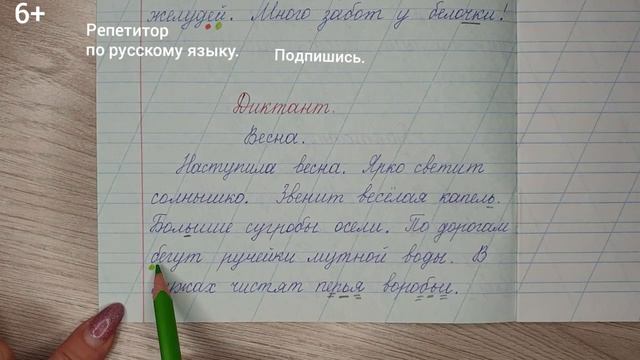 6+
желудей. Много забот у белочки!
Репетитор
по русскому языку.
Подпишись.
Диктант.
Весна.
Наступила весна. Ярко светит
солнышко. Звенит весёлая капель.
Большие сугробы осели. По дорогам
бегут ручейки мутной воды. В
чистят перья воробьи.